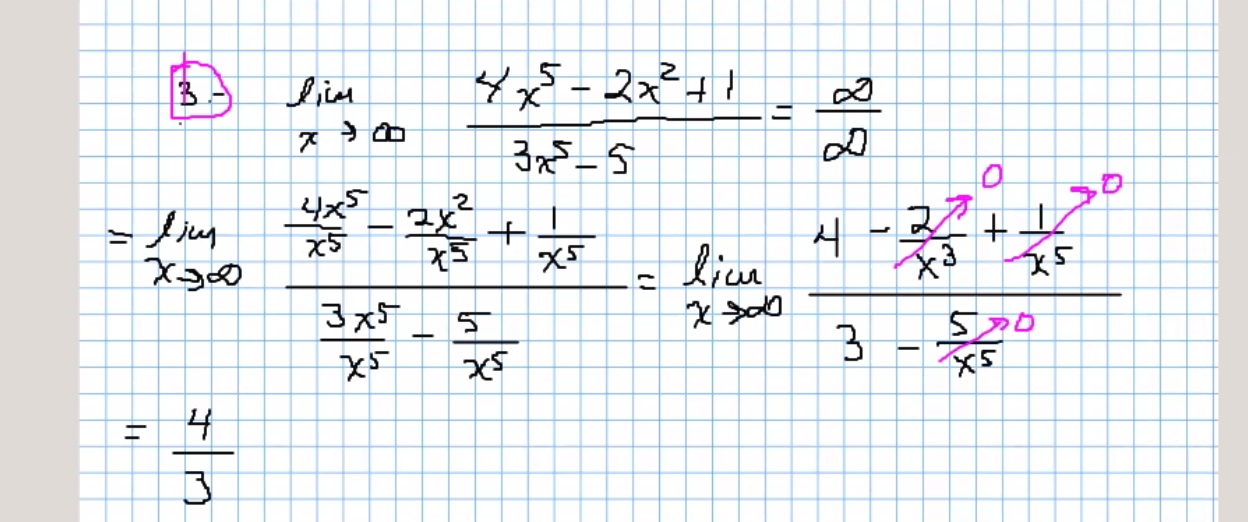 3.- lim x→∞ (4x⁵ - 2x² + 1)/(3x⁵ - 5) = ∞/∞
= lim x→∞ (4x⁵/x⁵ - 2x²/x⁵ + 1/x⁵)/(3x⁵/x⁵ - 5/x⁵) = lim x→∞ (4 - 2/x³ →0 + 1/x⁵ →0)/(3 - 5/x⁵ →0)
= 4/3